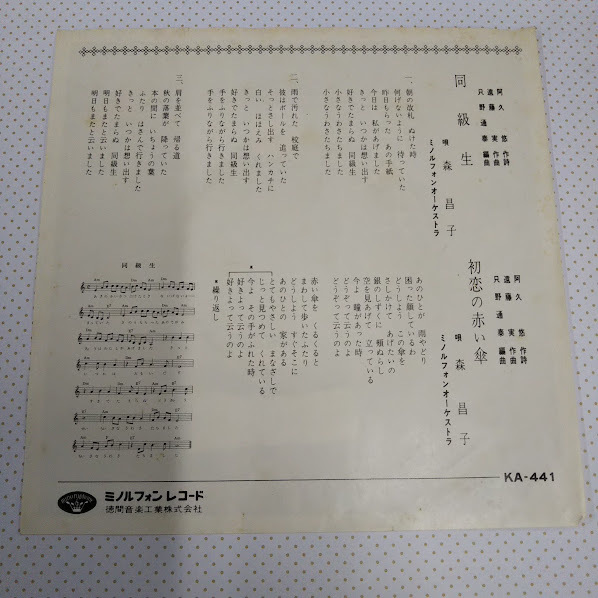 同級生
阿久悠 作詩
遠藤実 作曲
只野通泰 編曲
唄 森昌子
ミノルフォンオーケストラ
一、朝の改札 ぬけた時
何げないように 待っていた
昨日もらった あの手紙
今日は 私があげました
きっと いつかは想い出す
好きでたまらぬ 同級生
小さなうわさたちました
小さなうわさたちました
二、雨で汚れた 校庭で
彼はボールを 追っていた
そっとさし出す ハンカチに
白い ほほえみ くれました
きっと いつかは想い出す
好きでたまらぬ 同級生
手をふりながら行きました
手をふりながら行きました
三、肩を並べて 帰る道
秋の落葉が 降っていた
本の間に いちょうの葉
ふたり はさんで行きました
きっと いつかは想い出す
好きでたまらぬ 同級生
明日もまたと云いました
明日もまたと云いました
初恋の赤い傘
阿久悠 作詩
遠藤実 作曲
只野通泰 編曲
唄 森昌子
ミノルフォンオーケストラ
あのひとが 雨やどり
困った顔しているわ
どうしよう この傘を
さしかけて あげたいの
銀のしずくに 頬ぬらし
空を見あげて 立っている
今よ 瞳があった時
どうぞって云うのよ
どうぞって云うのよ
赤い傘を くるくると
まわして歩いたふたり
どうしよう すぐそこに
あのひとの 家がある
とてもやさしい まなざしで
じっと見つめて くれている
今よ その手がふれた時
好きよって云うのよ
好きよって云うのよ
＊繰り返し
同級生
KA-441
minoruphone
ミノルフォン レコード
徳間音楽工業株式会社